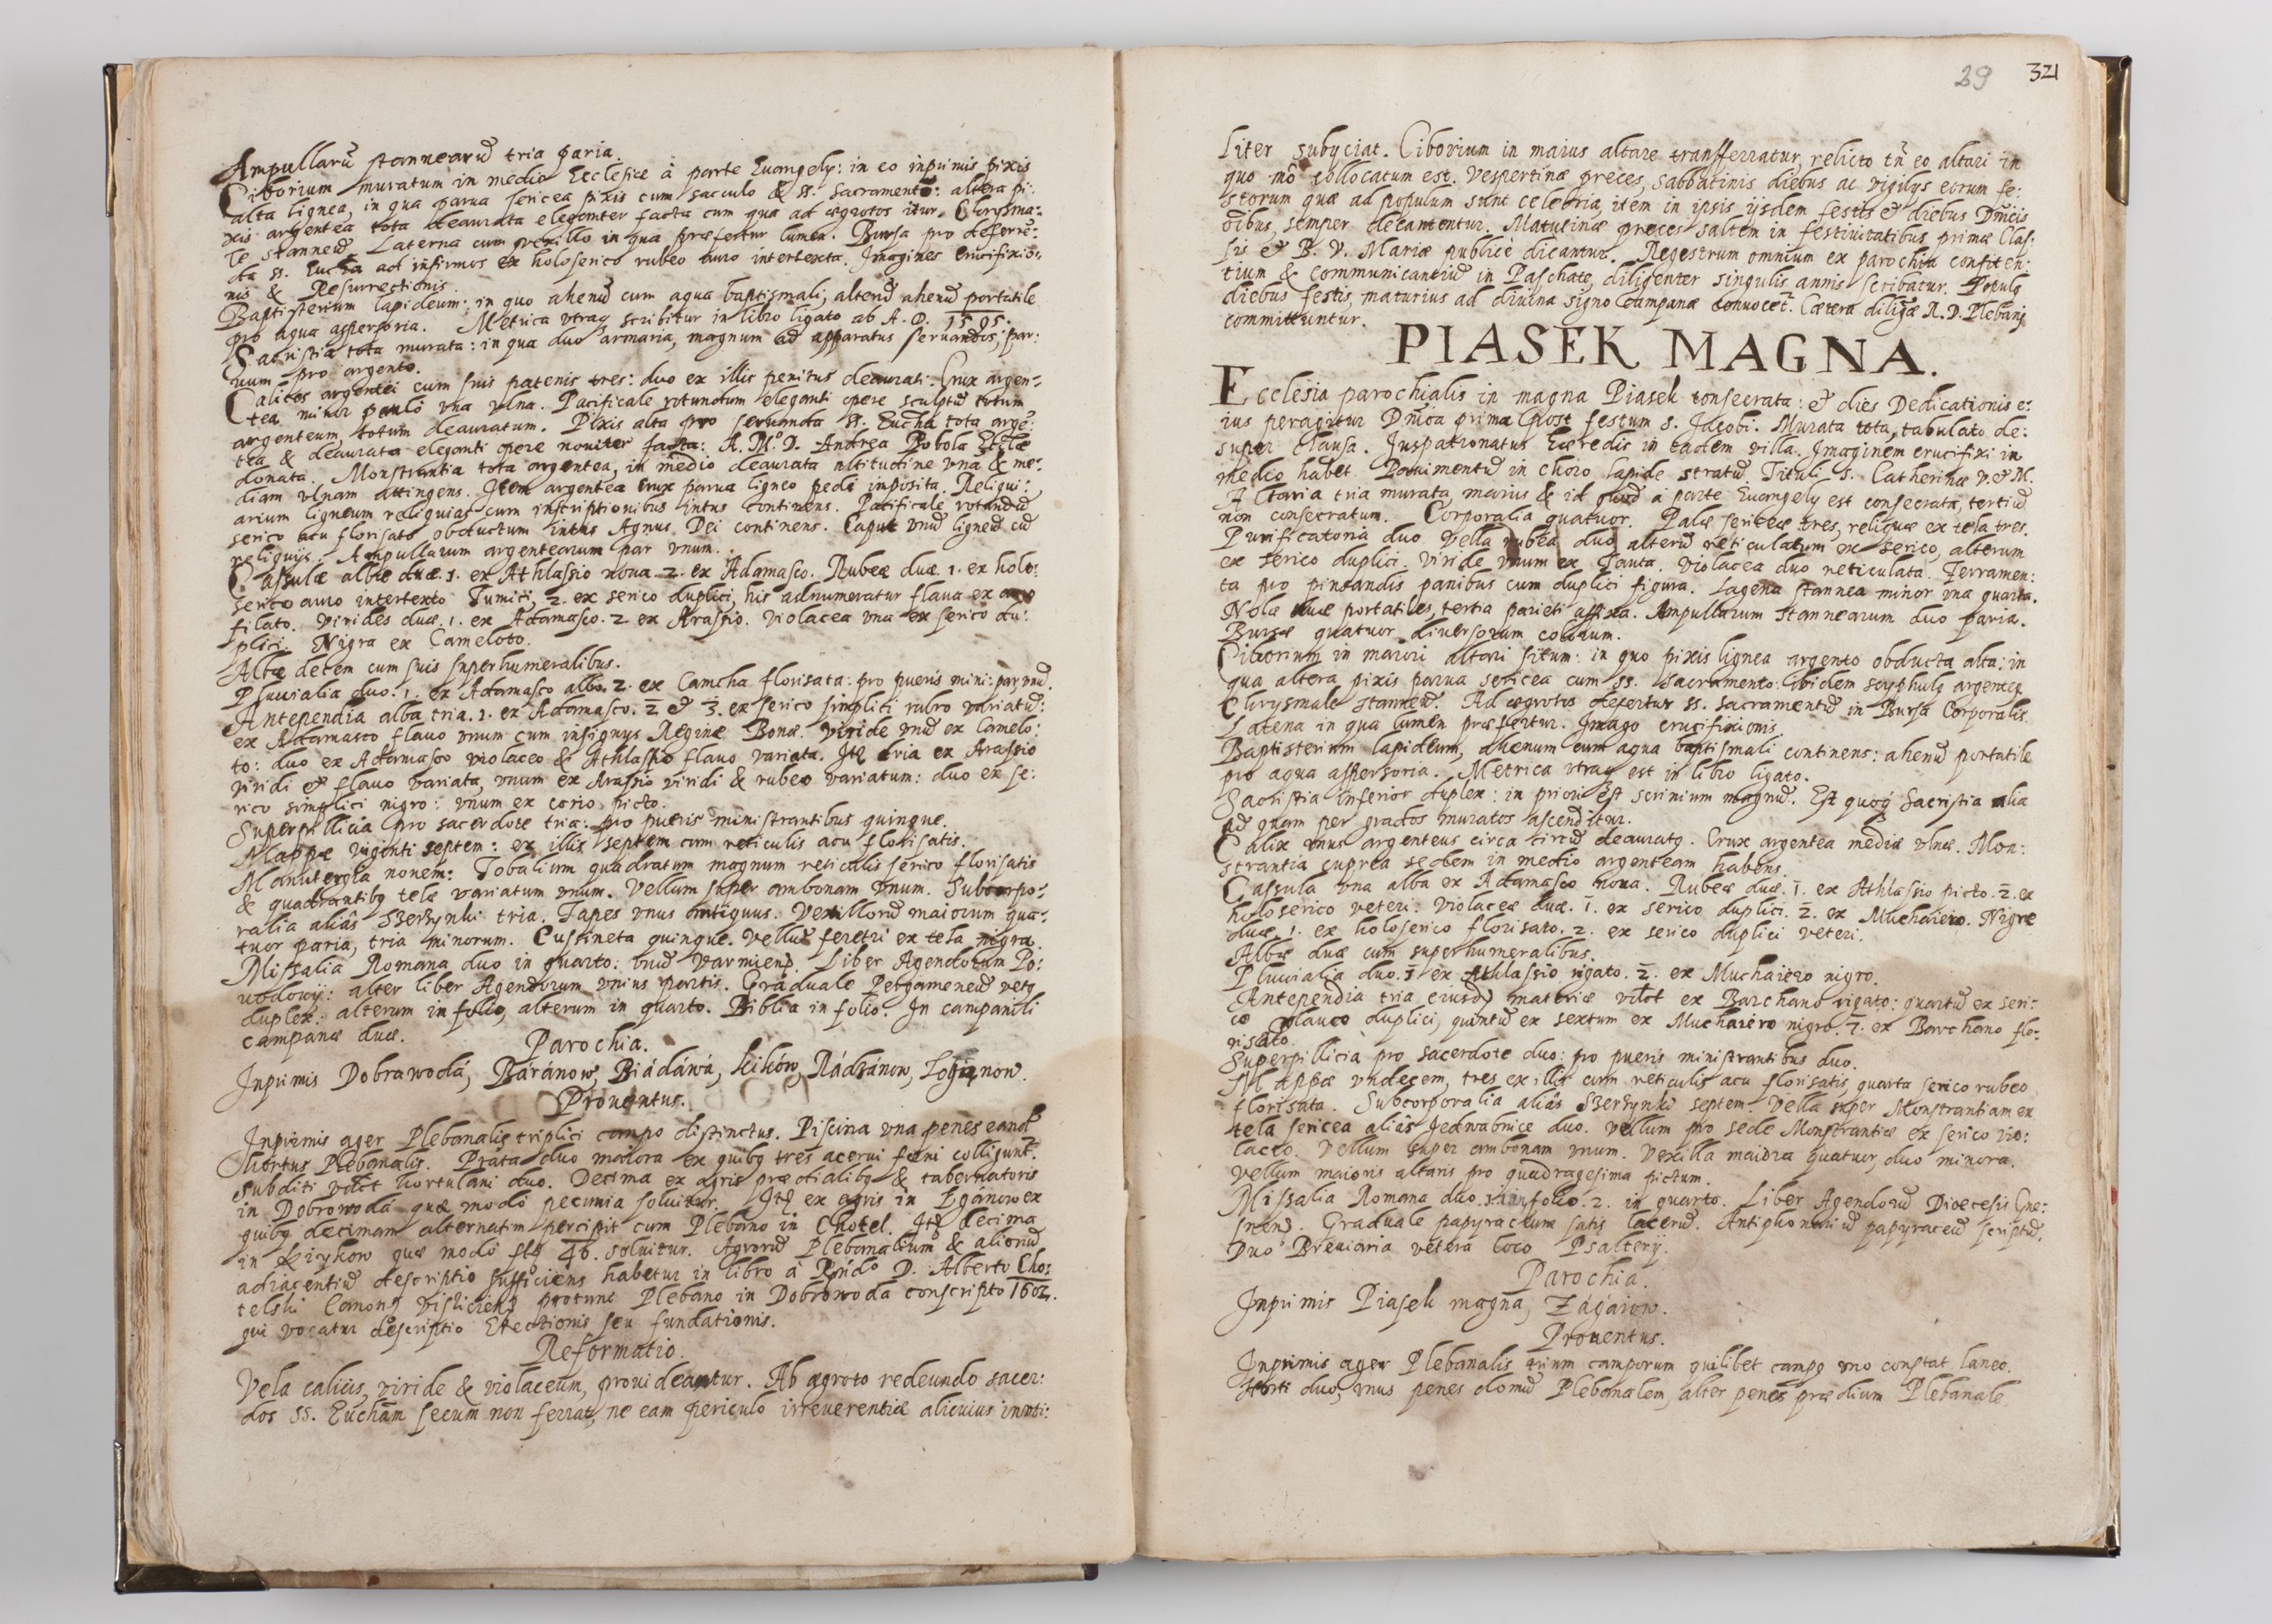 Ampullarū stannearū tria paria.
Ciborium muratum in medio Ecclesiæ à parte Euangelÿ: in eo inprimis pixis
alta lignea, in qua parua sericea pixis cum sacculo & ss. sacramento: altera pi:
xis argentea tota deaurata eleganter facta cum qua ad ægrotos itur. Chrysma:
le stanneū. Laterna cum vexillo in qua præfertur lumen. Bursa pro deferrē:
da ss. Eucha ad infirmos ex holoserico rubeo auro intertexta. Imagines Crucifixio:
nis & Resurrectionis.
Baptisterium lapideum: in quo ahenū cum aqua baptismali, alterū ahenū portatile
pro aqua aspersoria. Metrica vtraq scribitur in libro ligato ab A. D. 1595.
Sacristia tota murata: in qua duo armaria, magnum ad apparatus seruandos, par:
uum pro argento.
Calices argentei cum suis patenis tres: duo ex illis penitus deaurati. Crux argen:
tea minor paulò vna vlna. Pacificale rotundum eleganti opere sculptū totum
argenteum, totum deauratum. Pixis alta pro seruanda ss. Eucha tota argē:
tea & deaurata eleganti opere nouiter facta: A. M. D. Andrea Bobola
donata. Monstrantia tota argentea, in medio deaurata altitudine vna & me:
diam vlnam attingens. Item argentea crux parua ligneo pedi inposita. Reliqui:
arium ligneum reliquias cum inscriptionibus intus continens. Pacificale rotundū
serico acu florisato obductum intus Agnus Dei continens. Caput vnū ligneū cū
reliquijs. Ampullarum argentearum par vnum.
Casulæ albæ duæ. 1. ex Athlassio noua. 2. ex Adamasco. Rubeæ duæ. 1. ex holo:
serico auro intertexto Tumici, 2. ex serico duplici, his adnumeratur flaua ex auro
filato. Virides duæ. 1. ex Adamasco. 2. ex Arassio. Violacea vna ex serico du:
plici. Nigra ex Cameloto.
Albæ decem cum suis superhumeralibus.
Pluuialia duo: 1. ex Adamasco albo. 2. ex Camcha florisata: pro pueris mini: par vnū.
Antependia alba tria. 1. ex Adamasco. 2 & 3. ex serico simplici rubro variatū:
ex Adamasco flauo vnum cum insignijs Reginæ Bonæ. Viride vnū ex Camelo:
to: duo ex Adamasco violaceo & Athlassio flauo variata. Itē tria ex Arassio
viridi & flauo variata, vnum ex Arassio viridi & rubeo variatum: duo ex se:
rico simplici nigro: vnum ex corio picto.
Superpillicia pro sacerdote tria: pro pueris ministrantibus quinque.
Mappæ viginti septem: ex illis septem cum reticulis acu florisatis.
Manutergia nouem: Tobalium quadratum magnum reticulis serico florisatis
& quadrantibq telæ variatum vnum. Vellum super ambonam vnum. Subcorpo:
ralia aliâs Szerzynki tria. Tapes vnus antiquus. Vexillorū maiorum qua:
tuor paria, tria minorum. Cussineta quinque. Vellū feretri ex tela nigra.
Missalia Romana duo in quarto: vnū Varmiens. Liber Agendorum Po:
wodowÿ: alter liber Agendorum vnius partis. Graduale Pergameneū vetq
duplex: alterum in folio, alterum in quarto. Biblia in folio. In campanili
campanæ duæ.
Parochia.
Inprimis Dobrawodá, Báránow, Biádáwá, Kików, Rádzánow,
Prouentus.
Inprimis ager Plebanalis triplici campo distinctus. Piscina vna penes eand
hortus Plebanalis. Prata duo maiora ex quibq tres acerui fæni colligunt.
Subditi hortulani duo. Decima ex agris prædialibq & tabernatoris
in Dobrowoda quæ modò pecunia soluitur. Itē ex agris in Eganow ex
quibq decimam alternatim percipit cum Plebano in Chotel. Itē decima
in Kicykow quæ modò flq 46. soluitur. Agrorū Plebanalium & aliorū
adiacentiū descriptio sufficiens habetur in libro à Rndo D. Alberto Cho:
telski Canonq Visliciens protunc Plebano in Dobrowoda conscripto 1602.
qui vocatur descriptio Erectionis seu fundationis.
Reformatio.
Vela calicis, viride & violaceum, prouideantur. Ab ægroto redeundo sacer:
dos ss. Eucham secum non ferrat, ne eam periculo irreuerentiæ alicuius inuti:
29 321
liter subÿciat. Ciborium in maius altare transfferratur, relicto tn eo altari in
quo mō collocatum est. Vespertinæ preces, sabbatinis diebus ac vigilÿs eorum fe:
storum quæ ad populum sunt celebria, item in ipsis ÿsdem festis & diebus Dnicis
oibus, semper decantentur. Matutinæ preces saltem in festiuitatibus primæ Clas:
sis & B. V. Mariæ publicè dicantur. Regestrum omnium ex parochia confiten:
tium & communicantiū in Paschate, diligenter singulis annis scribatur. Populq
diebus festis, maturius ad diuina signo campanæ conuocet. Cætera diligæ R. D. Plebani
committuntur.
PIASEK MAGNA.
Ecclesia parochialis in magna Piasek consecrata: & dies Dedicationis e:
ius peragitur Dnica prima post festum S. Jacobi. Murata tota, tabulato de:
super clausa. Juspatronatus Hæredis in eadem villa. Imaginem crucifixi in
medio habet Pauimentū in choro lapide stratū. Tituli S. Catherinæ V. & M.
Altaria tria murata, maius & id quod à parte Euangelÿ est consecrata, tertiū
non consecratum. Corporalia quatuor. Palæ sericeæ tres, reliquæ ex tela tres.
Purificatoria duo. Vella rubea duo alterū reticulatum ex serico, alterum
ex serico duplici. Viride vnum ex Tauta. Violacea duo reticulata. Ferramen:
ta pro pinsandis panibus cum duplici figura. Lagena stannea minor vna quarta.
Nolæ duæ portatiles, tertia parieti affixa. Ampullarum stannearum duo paria.
Bursæ quatuor diuersorum colorum.
Ciborium in maiori altari situm: in quo pixis lignea argento obducta alta: in
qua altera pixis parua sericea cum ss. sacramento. Ibidem scyphulq argenteq.
Chrysmale stanneū. Ad ægrotos defertur ss. sacramentū in Bursa Corporalis.
Latena in qua lumen præfertur. Imago crucifixionis.
Baptisterium lapideum, ahenum cum aqua baptismali continens: ahenū portatile
pro aqua aspersoria. Metrica vtraq est in libro ligato.
Sacristia inferior duplex: in priori est scrinium magnū. Est quoq Sacristia alia
ad quam per gradus muratos ascenditur.
Calix vnus argenteus circa circū deauratq. Crux argentea mediæ vlnæ. Mon:
strantia cuprea sedem in medio argenteam habens.
Casula vna alba ex Adamasco noua. Rubeæ duæ. 1. ex Athlassio picto. 2. ex
holoserico veteri. Violaceæ duæ. 1. ex serico duplici. 2. ex Muchaiero. Nigræ
duæ. 1. ex holoserico florisato. 2. ex serico duplici veteri.
Albæ duæ cum superhumeralibus.
Pluuialia duo. 1 ex Athlassio rigato. 2. ex Muchaiero nigro.
Antependia tria eiusd materiæ ex Barchano rigato: quartū ex seri:
co glauco duplici, quintū ex sextum ex Muchaiero nigro. 7. ex Barchano flo:
risato.
Superpillicia pro sacerdote duo: pro pueris ministrantibus duo.
Mappæ vndecem, tres ex illis cum reticulis acu florisatis, quarta serico rubeo
florisata. Subcorporalia aliâs Szerzynki septem. Vella super Monstrantiam ex
tela sericea aliâs Jedwabnice duo. Vellum pro sede Monstrantiæ ex serico vio:
laceo. Vellum super ambonam vnum. Vexilla maiora quatuor, duo minora.
Vellum maioris altaris pro quadragesima pictum.
Missalia Romana duo. 1. in folio. 2. in quarto. Liber Agendorū Diœcesis Gne:
snens. Graduale papyraceum satis lacerū. Antiphonariū papyraceū scriptū.
Duo Breuiaria vetera loco Psalterÿ.
Parochia.
Inprimis Piasek magna, Zágáiow.
Prouentus.
Inprimis ager Plebanalis trium camporum quilibet campq vno constat laneo.
Horti duo, vnus penes domū Plebanalem, alter penes prædium Plebanale.